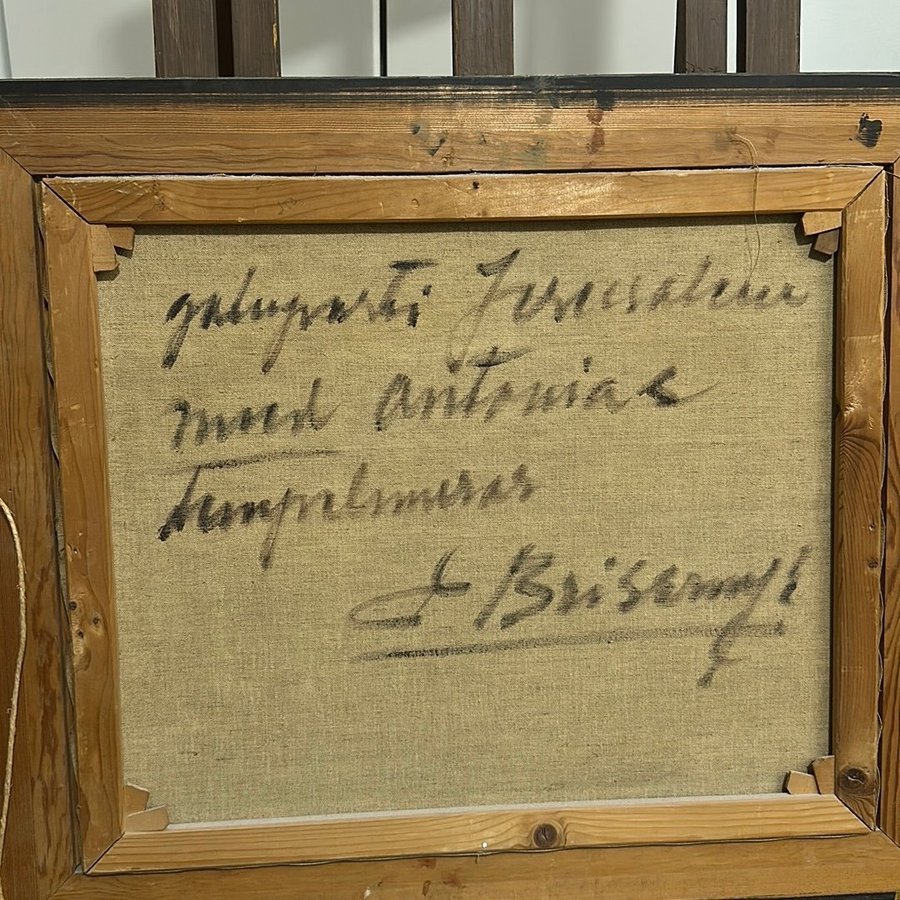 gatuparti Jerusalem
med Antonias
tempelmurar
J Brisermyi